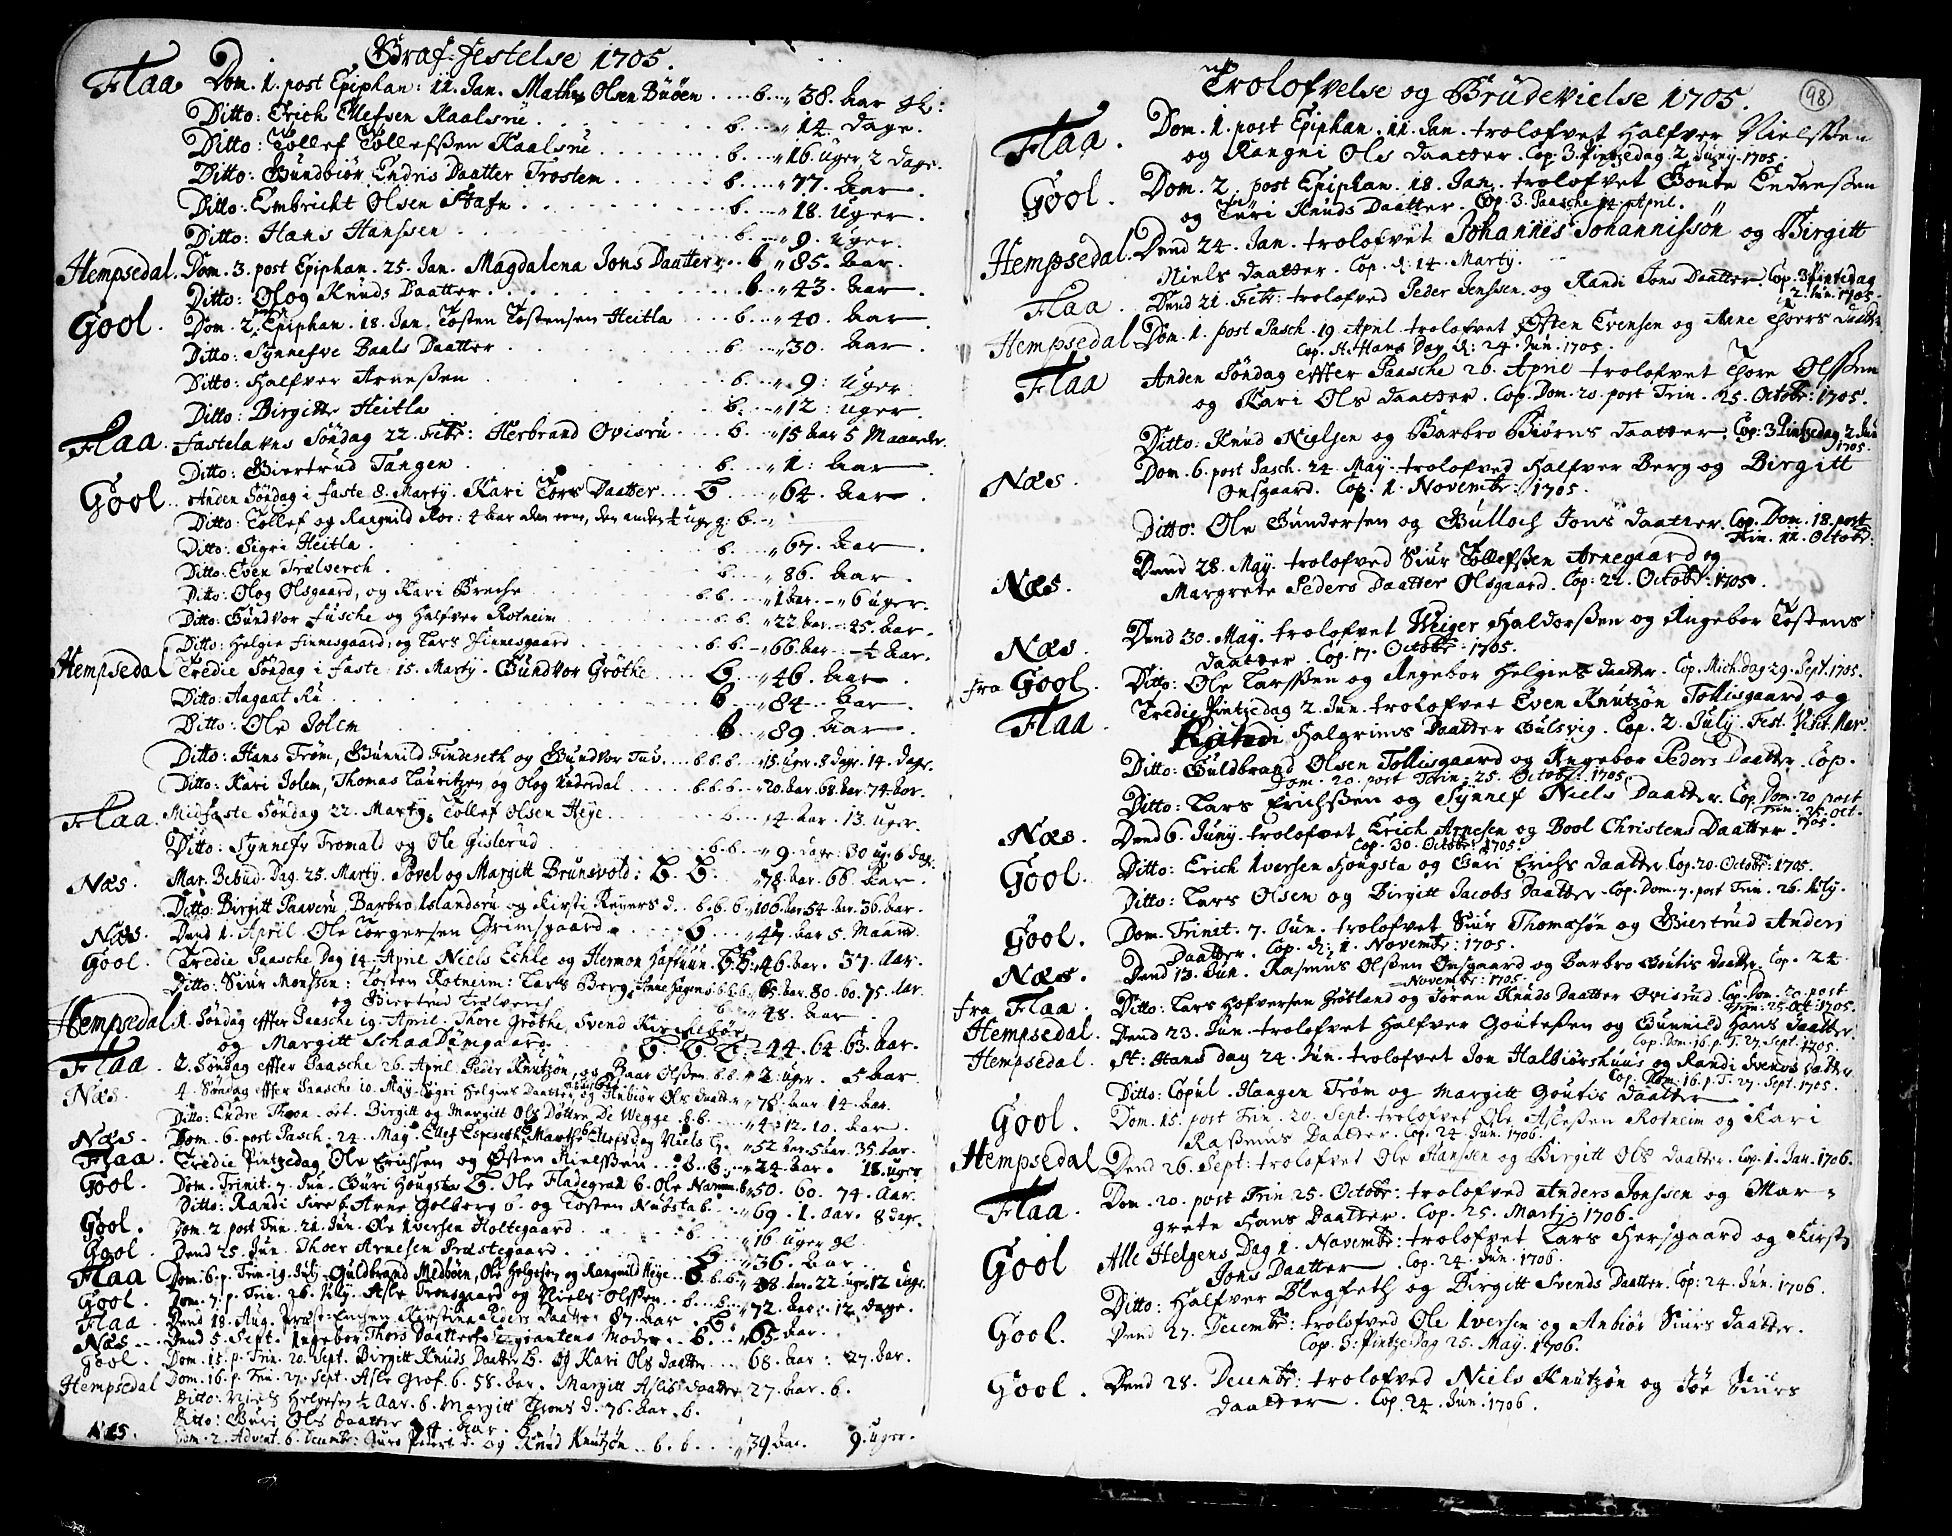 Graf-festelse 1705.
Flaa Dom. 1. post Epiphan: 11. Jan. Mathis Olsen Buöen .... b. ... 38. Aar gl:
Ditto: Erich Ellefsen Kaalsrue ... b. ... 14. dage.
Ditto: Tollef Tollefßen Kaalsrue ... b. ... 16. Uger, 2 dage.
Ditto: Gundbiör Endris Daatter Trostem ... b. ... 77. Aar.
Ditto: Embricht Olsen Stafn ... b. ... 18. Uger.
Ditto: Hans Hanssen ... b. ... 9. Uger.
Hempsedal. Dom. 3. post Epiphan. 25. Jan. Magdalena Jons Daatter ... b ... 85. Aar.
Ditto: Olog Knuds Daatter ... b ... 43. Aar.
Gool. Dom. 2. post Epiphan. 18. Jan. Tosten Tostensen Heitla ... b. ... 40. Aar
Ditto: Synnefve Baals Daatter ... b ... 30. Aar.
Ditto: Halfver Arneßen ... b. ... 9: Uger
Ditto: Birgitte Heitla ... b. ... 12: Uger.
Flaa. Fastelavns Söndag 22. Febr: Herbrand Ovisrü ... b. ... 15 Aar 5 Maaneder.
Ditto: Giertrud Tangen ... b. ... 1: Aar
Gool. Anden Söndag i faste 8. Martÿ. Kari Tors Daatter ... b ... 64. Aar.
Ditto: Tollef og Raagnild Roe: 4 Aar den eene, den anden ½ uge gl: b.
Ditto: Sigri Heitla ... b. ... 67. Aar.
Ditto: Even Trælverch ... b. ... 86. Aar.
Ditto: Olog Olsgaard, og Kari Breche ... b.b. ... 1 Aar. — 6 uger.
Ditto: Gundvor Fusche og Halfver Rotneim ... b. b. ... 22. Aar. — 45. Aar.
Ditto: Helgie Finnesgaard: og Lars Finnesgaard ... b. b. ... 66. Aar. — ½ Aar.
Hempsedal Tredie Söndag i faste 15. Martÿ. Gundvor Gröthe ... b. ... 46. Aar.
Ditto: Aagaat Ru ... b ... 84. Aar.
Ditto: Ole Solem ... b ... 89. Aar
Ditto: Hans Tröm, Gunnild Findeseth og Gundvor Tuv ... b. b. b. ... 15. Uger. 8 dage. 14. dage.
Ditto: Kari Solem, Thomas Lauritzen og Olog Underdal ... b. b. b. ... 20. Aar. 68. Aar. 74. Aar.
Flaa. Midfaste Söndag 22. Martÿ. Tollef Olsen Heÿe ... b. ... 4. Aar. 13. Uger.
Ditto: Synnefv Tromald og Ole Gislerud ... b. b. ... 9. dage: 30 ug. 6 dage
Næs. Mar. Bebud. Dag. 25. Martÿ. Povel og Margitt Brunsvold: b. b. ... 78. Aar. 66. Aar.
Ditto: Birgitt Paaveru, Barbro Islandsru og Kirsti Reiers d. b. b. b. 106. Aar 54 Aar. 36. Aar.
Næs. Dend 1. April. Ole Torgersen Grimsgaard. ... b ... 47. Aar 5. Maaned.
Gool. Tredie Paasche Dag 14. April Niels Echle og Hermon Jaftuun. b. b. 46. Aar. 37. Aar.
Ditto: Siur Monssen: Tosten Rotneim: Lars Berg: b. b. b. 65. Aar. 80. 60. 75. Aar.
og Giertrud Trælverch ... b ... 48. Aar
Hempsedal 1. Söndag effter Paasche 19. April. Thore Gröthe, Svend Kircheböe
og Margitt Schaa Dengaard. b. b. b. 44. 64. 63. Aar.
Flaa. 2. Söndag effter Paasche 26. April. Peder Knutzön, og Baar Olßen. b. b. 2. Uger. 5 Aar
Næs. 4. Söndag effter Paasche 10. Maÿ. Sigri Helgies Daatter og Anbiör Ols Daatter 78. Aar 14. Aar.
Ditto: Endre Thon. Birgitt og Margitt Ols Döttre De Wegge b. b. 4. 12. 10. Aar.
Næs. Dom. 6. post Pasch. 24. Maÿ. Ellef Espeseth, Marthe Ellefs D. og Niels 52 Aar. 5 Aar. 35. Aar.
Flaa. Tredie Pintzedag Ole Erichsen og Östen Nielssen. b. b. 24. Aar. 18. Uger
Gool. Dom. Trinit. 7. Jun. Guri Hougsta b. Ole Flaaegrad b. Ole b. 50. 60. 74. Aar.
Ditto: Randi Sire b. Arne Golberg b. og Tosten Nubsta b. ... 69. 1. Aar. 8 dage.
Gool. Dom. 2. post Trin. 21. Jun. Ole Iversen Holtegaard ... b. ... 16 Uger gl.
Gool. Dend 25. Jun. Thoer Arnesen Præstegaard ... b ... 36. Aar
Flaa Dom. 6. p. Trin. 19. Julÿ. Guldbrand Medböen, Ole Helgesen og Rangnild Heÿe. b. b. b. 22. Uger. 12 dage.
Gool. Dom. 7. p. Trin. 26. Julÿ. Asle Tronsgaard og Niels Olßen. b. b. 72. Aar. 12. dage.
Flaa. Dend 18. Aug. Præst-Enchen Kirstina Peders Daatter 87. Aar. b.
Næs. Dend 5. Sept. Ingebor Thors Daatter Moder. b. 65 Aar.
Gool. Dom. 15. p. Trin. 20. Sept. Birgitt Knuds Daatter b. og Kari Ols Daatter ... 68. Aar: 27. Aar.
Hempsedal Dom. 16. p. Trin. 27. Sept. Asle Grof. b. 58. Aar. Margitt Aslis Daatter 27. Aar. b.
Ditto: Niels Helgesen ½ Aar. b. Margitt Trons d. 76. Aar. b.
Ditto: Guri Ols Daatter 74. Aar. b.
Næs. Dom. 2. Advent. 6. Decembr: Guro Peders d. og Knud Knutzön. b. b. 39. Aar. 9. uger.
98
Trolofvelse og Brudevielse 1705.
Flaa. Dom. 1. post Epiphan. 11. Jan. trolofvet Halfver Nielßen
og Rangni Ols Daatter. Cop. 3. Pintzedag. 2. Junÿ. 1705.
Gool. Dom. 2. post Epiphan. 18. Jan. trolofvet Goute Endreßen
og Turi Knuds Daatter. Cop. 3. Paasche 14. April.
Hempsedal. Dend 24. Jan. trolofvet Johannis Johannissön og Birgitt
Niels Daatter. Cop. d: 14. Martÿ.
Flaa. Dend 21. Febr: trolofved Peder Jenssen og Randi Jons Daatter. Cop. 3 Pintzedag
2. Jun. 1705.
Hempsedal Dom. 1. post Pasch. 19. April trolofvet Östen Evensen og Anne Thoers Daatter
Cop. St. Hans Dag d: 24. Jun. 1705.
Flaa Anden Söndag effter Paasche 26. April trolofvet Thore Olßen
og Kari Ols Daatter. Cop. Dom. 20. post Trin. 25. Octobr: 1705.
Ditto: Knud Nielsen og Barbro Biörns Daatter. Cop: 3 Pintzedag 2. Jun
1705.
Næs. Dom. 6. post Pasch. 24. Maÿ. trolofved Halfver Berg og Birgitt
Onsgaard. Cop. 1. Novembr: 1705.
Ditto: Ole Gundersen og Gulloch Jons Daatter. Cop. Dom. 18. post
Trin. 11. Octobr:
Næs. Dend 28. Maÿ. trolofved Siur Tollefßen Arnegaard og
Margrete Peders Daatter Olsgaard. Cop: 22. Octobr: 1705.
Næs. Dend 30. Maÿ. trolofvet Weiger Haldorßen og Ingebor Tostens
Daatter. Cop. 17. Octobr: 1705.
fra Gool. Ditto: Ole Larsßen og Ingebor Helgies Daatter. Cop. Mich. dag 29. Sept. 1705.
Flaa Tredie Pintzedag 2. Jun. trolofvet Even Knutzön Tollisgaard og
Halgrims Daatter Gulsvig. Cop. 2. Julÿ. Fest. Visit. Mar.
Ditto: Guldbrand Olsen Tollisgaard og Ingebor Peders Daatter. Cop.
Dom. 20. post Trin: 25. Octobr: 1705.
Ditto: Lars Erichßen og Synnef Niels Daatter. Cop. Dom. 20 post
Trin. 25. Oct. 1705.
Næs. Dend 6. Junÿ. trolofvet Erich Arnesen og Bool Christens Daatter.
Cop. 30. Octobr: 1705.
Gool. Ditto: Erich Iversen Hougsta og Guri Erichs Daatter. Cop. 20. Octobr: 1705.
Ditto: Lars Olsen og Birgitt Jacobs Daatter. Cop. Dom. 7. post Trin. 26. Julÿ.
Gool. Dom. Trinit. 7. Jun. trolofvet Siur Thomasön og Giertrud Anders
Daatter. Cop. d: 1. Novembr: 1705.
Næs. Dend 13. Jun. Rasmus Olßen Onsgaard og Barbro Goutis Daatter. Cop. 24.
Novembr: 1705.
fra Flaa. Ditto: Lars Hofversen Grötland og Söran Knuds Daatter Ovisrud. Cop. Dom. 20. post
Trin. 25. Oct. 1705.
Hempsedal. Dend 23. Jun. trolofvet Halfver Gouteßen og Gunnild Hans Daatter.
Cop. Dom. 16. p. T. 27. Sept. 1705.
Hempsedal. St: Hans dag 24. Jun. trolofvet Jon Halbiörshuus og Randi Svends Datter
Cop. Dom. 16. p. T. 27. Sept. 1705.
Ditto: Copul. Haagen Tröm og Margitt Goutis Daatter
Gool. Dom. 15. post Trin. 20. Sept. trolofvet Ole Asleßen Rotneim og Kari
Rasmus Daatter. Cop. 24. Jun. 1706.
Hempsedal Dend 26. Sept: trolofvet Ole Hanssen og Birgitt Ols Daatter. Cop. 1. Jan. 1706.
Flaa. Dom. 20. post Trin 25. Octobr: trolofved Anders Jonssen og Mar-
grete Hans Daatter. Cop. 25. Martÿ. 1706.
Gool Alle Helgens Dag 1. Novembr: trolofvet Lars Hersgaard og Kirsti
Jons Daatter. Cop. 24. Jun. 1706.
Ditto: Halfver Blegfeth og Birgitt Svends Daatter. Cop: 24. Jun. 1706.
Gool. Dend 27. Decembr: trolofvet Ole Iversen og Anbiör Siurs Daatter.
Cop. 3: Pintze Dag 25. Maÿ. 1706.
Gool. Dend 28. Decembr: trolofved Niels Knutzön og Jöe Siurs
Daatter. Cop. 24. Jun. 1706.